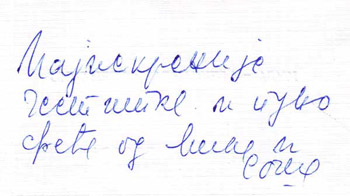 Најискреније
честитке и пуно
среће од
и